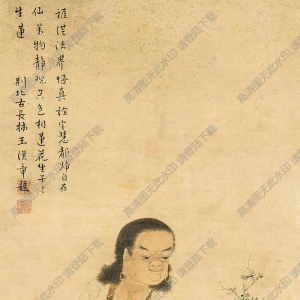 誰從法界悟真詮宇慧都歸自在
仙萬物靜觀只色相蓮花生千々
生蓮
荊北古長林王漢章題